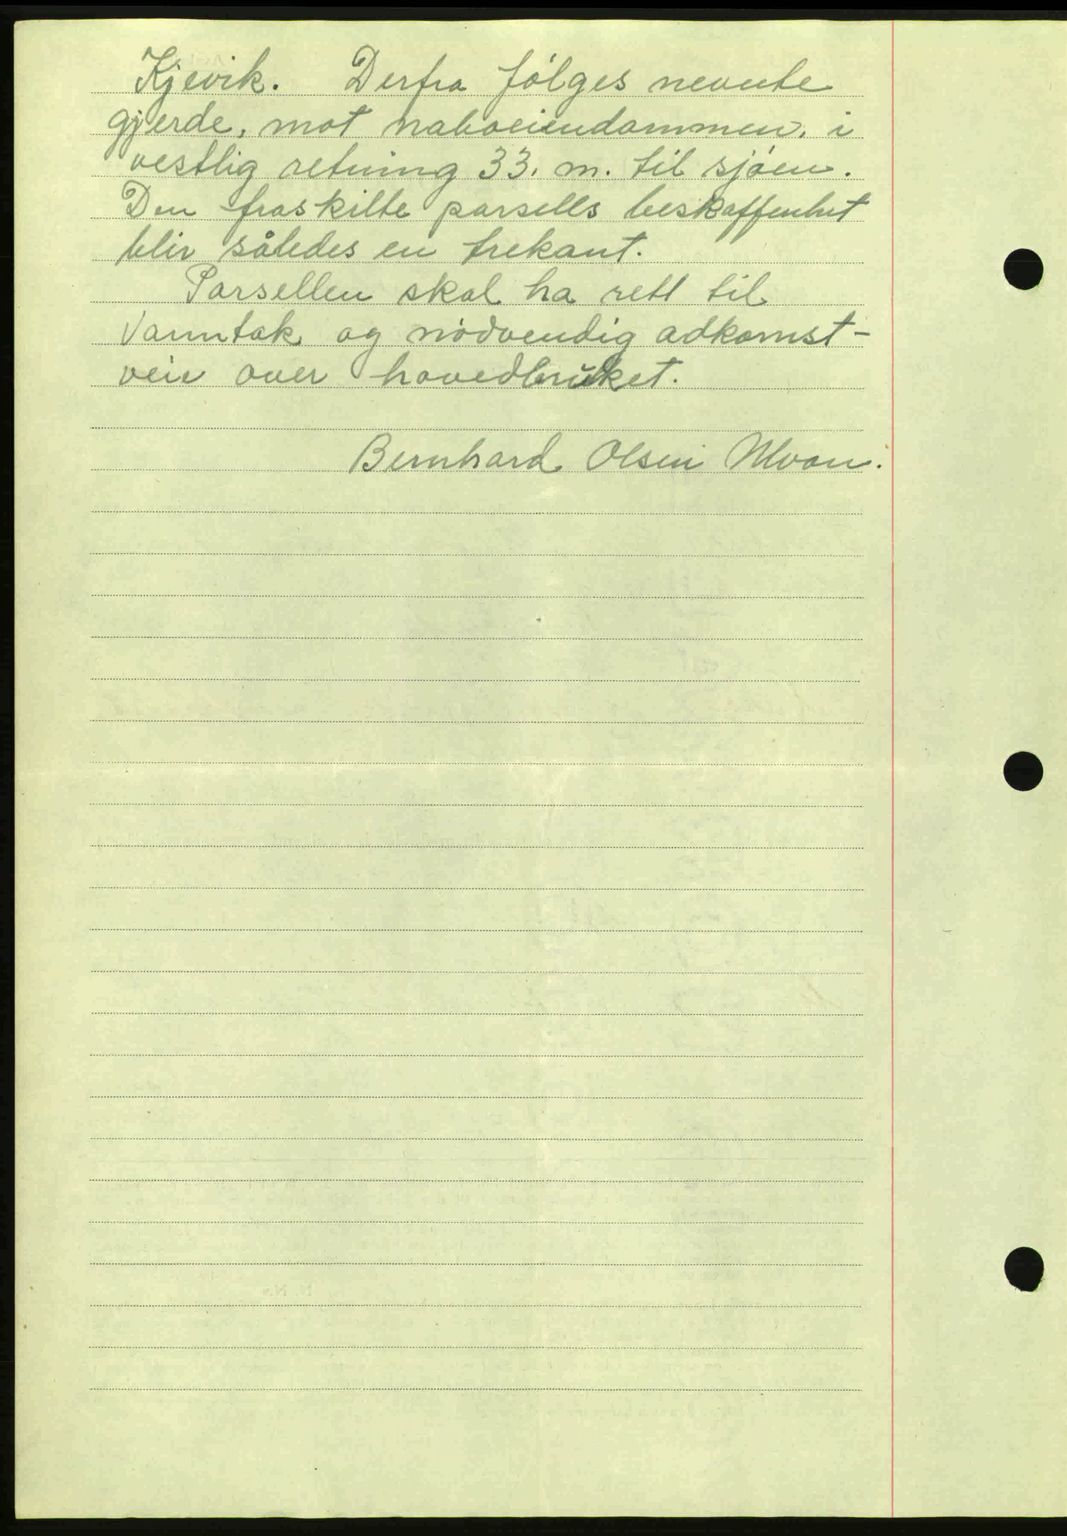 Kjevik. Derfra følges nevnte
gjerde, mot naboeiendommen, i
vestlig retning 33. m. til sjøen.
Den fraskilte parsells beskaffenhet
blir således en trekant.
Parsellen skal ha rett til
vanntak og nødvendig adkomst-
vei over hovedbruket.
Bernhard Olsen